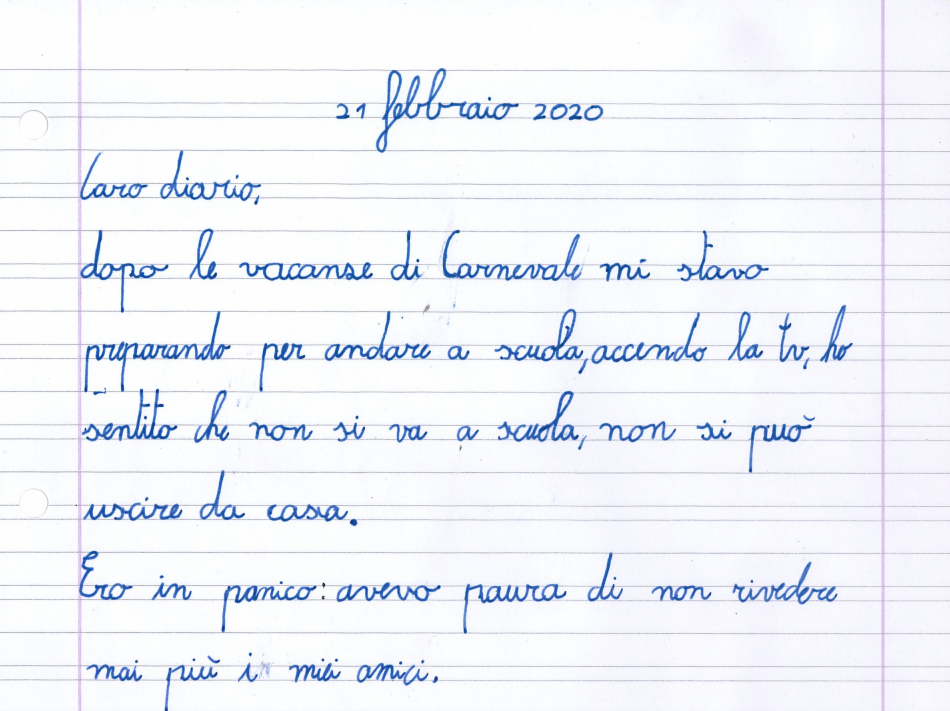 21 febbraio 2020
Caro diario,
dopo le vacanse di Carnevale mi stavo
preparando per andare a scuola, accendo la tv, ho
sentito che non si va a scuola, non si può
uscire da casa.
Ero in panico: avevo paura di non rivedere
mai più i miei amici.